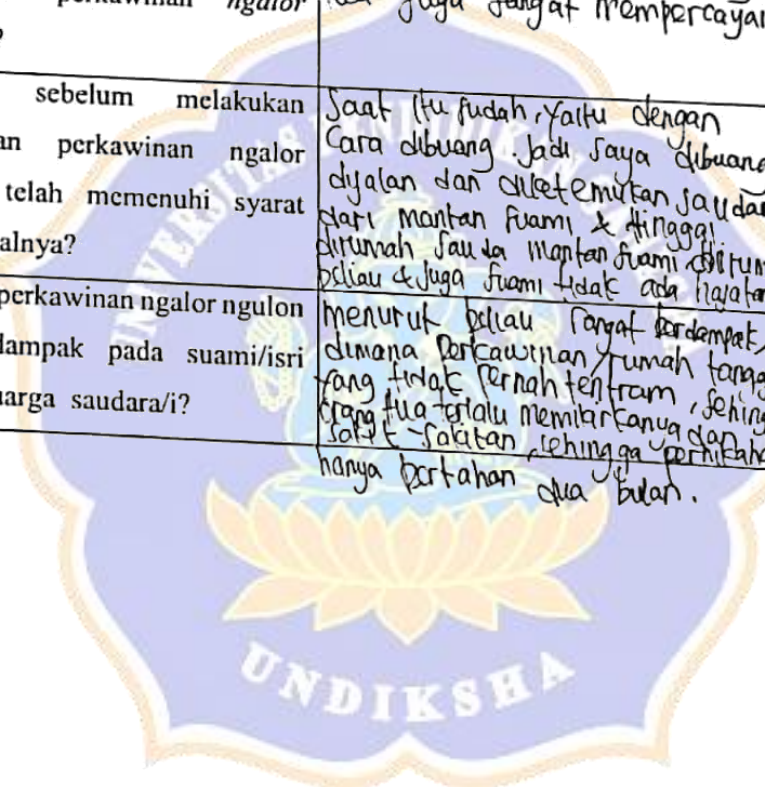 perkawinan ngalor
?
juga sangat mempercayai
sebelum melakukan
an perkawinan ngalor
telah memenuhi syarat
alnya?
Saat itu sudah, yaitu dengan
Cara dibuang. Jadi saya dibuang
dijalan dan diketemukan saudar
dari mantan suami & tinggal
dirumah sauda mantan suami dirum
beliau & juga suami tidak ada hajatan
perkawinan ngalor ngulon
dampak pada suami/isri
uarga saudara/i?
menurut beliau sangat berdampak,
dimana perkawinan/rumah tangg
yang tidak pernah tentram, sehing
orang tua terlalu memikirkanya dan
sakit-sakitan, sehingga pernikaha
hanya bertahan dua bulan.
UNIVERSITAS PENDIDIKAN GANESHA
UNDIKSHA